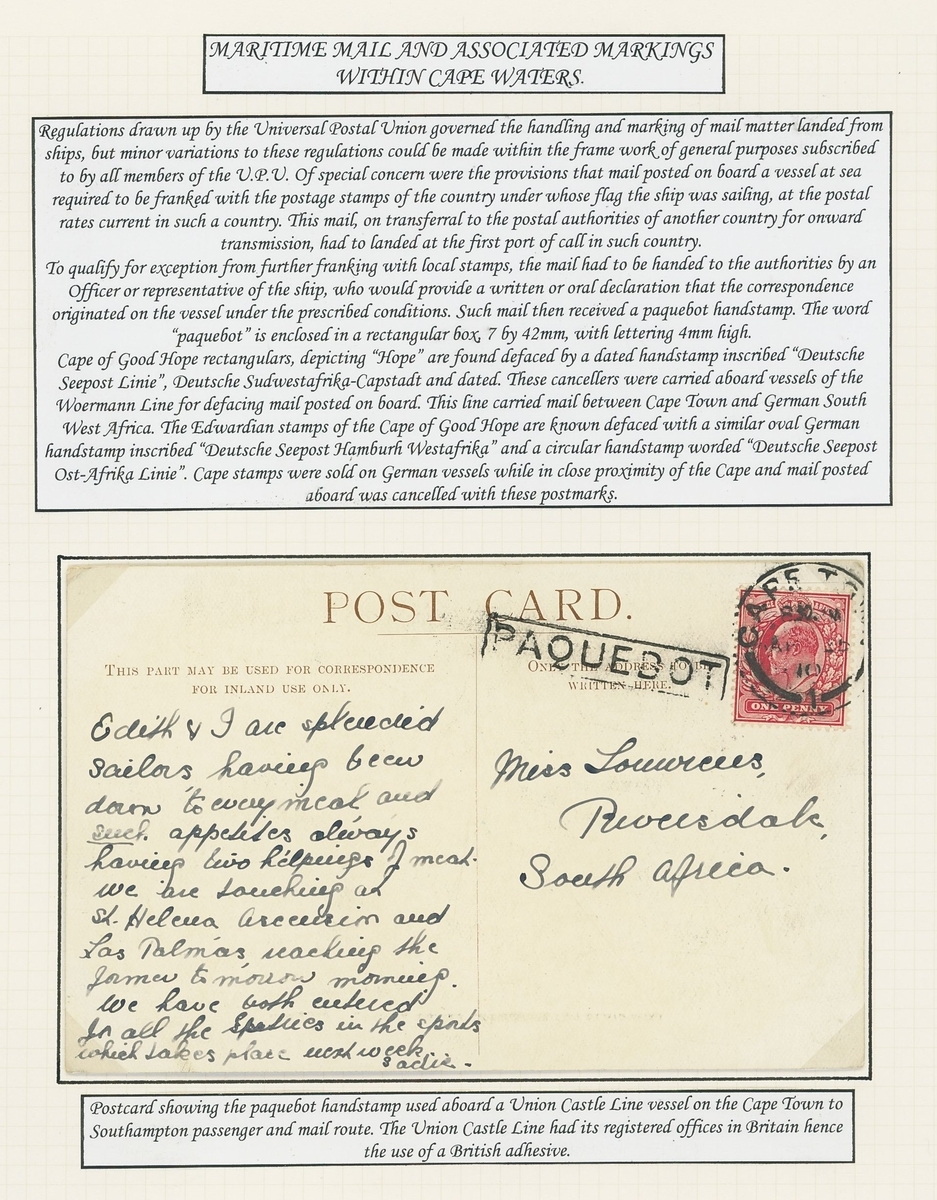 MARITIME MAIL AND ASSOCIATED MARKINGS
WITHIN CAPE WATERS.
Regulations drawn up by the Universal Postal Union governed the handling and marking of mail matter landed from
ships, but minor variations to these regulations could be made within the frame work of general purposes subscribed
to by all members of the U.P.U. Of special concern were the provisions that mail posted on board a vessel at sea
required to be franked with the postage stamps of the country under whose flag the ship was sailing, at the postal
rates current in such a country. This mail, on transferral to the postal authorities of another country for onward
transmission, had to landed at the first port of call in such country.
To qualify for exception from further franking with local stamps, the mail had to be handed to the authorities by an
Officer or representative of the ship, who would provide a written or oral declaration that the correspondence
originated on the vessel under the prescribed conditions. Such mail then received a paquebot handstamp. The word
“paquebot” is enclosed in a rectangular box, 7 by 42mm, with lettering 4mm high.
Cape of Good Hope rectangulars, depicting “Hope” are found defaced by a dated handstamp inscribed “Deutsche
Seepost Linie”, Deutsche Sudwestafrika-Capstadt and dated. These cancellers were carried aboard vessels of the
Woermann Line for defacing mail posted on board. This line carried mail between Cape Town and German South
West Africa. The Edwardian stamps of the Cape of Good Hope are known defaced with a similar oval German
handstamp inscribed “Deutsche Seepost Hamburh Westafrika” and a circular handstamp worded “Deutsche Seepost
Ost-Afrika Linie”. Cape stamps were sold on German vessels while in close proximity of the Cape and mail posted
aboard was cancelled with these postmarks.
POST CARD.
PAQUEBOT
CAPE TO
10
1
ONE PENNY
THIS PART MAY BE USED FOR CORRESPONDENCE
FOR INLAND USE ONLY.
ONLY THE ADDRESS TO BE
WRITTEN HERE.
Edith & I are splendid
sailors having been
down to every meal and
such appetites always
having two helpings of meat.
We are touching at
St. Helena Ascension and
Las Palmas, reaching the
former tomorrow morning.
We have both entered
for all the in the sports
which takes place next week.
Sadie.
Miss Louwrens,
Riversdale,
South Africa.
Postcard showing the paquebot handstamp used aboard a Union Castle Line vessel on the Cape Town to
Southampton passenger and mail route. The Union Castle Line had its registered offices in Britain hence
the use of a British adhesive.